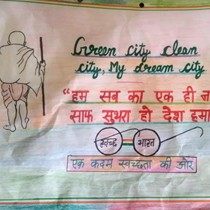 Green city clean
city, My dream city
"हम सब का एक ही न
साफ सुथरा हो देश हमा
स्वच्छ भारत
एक कदम स्वच्छता की ओर